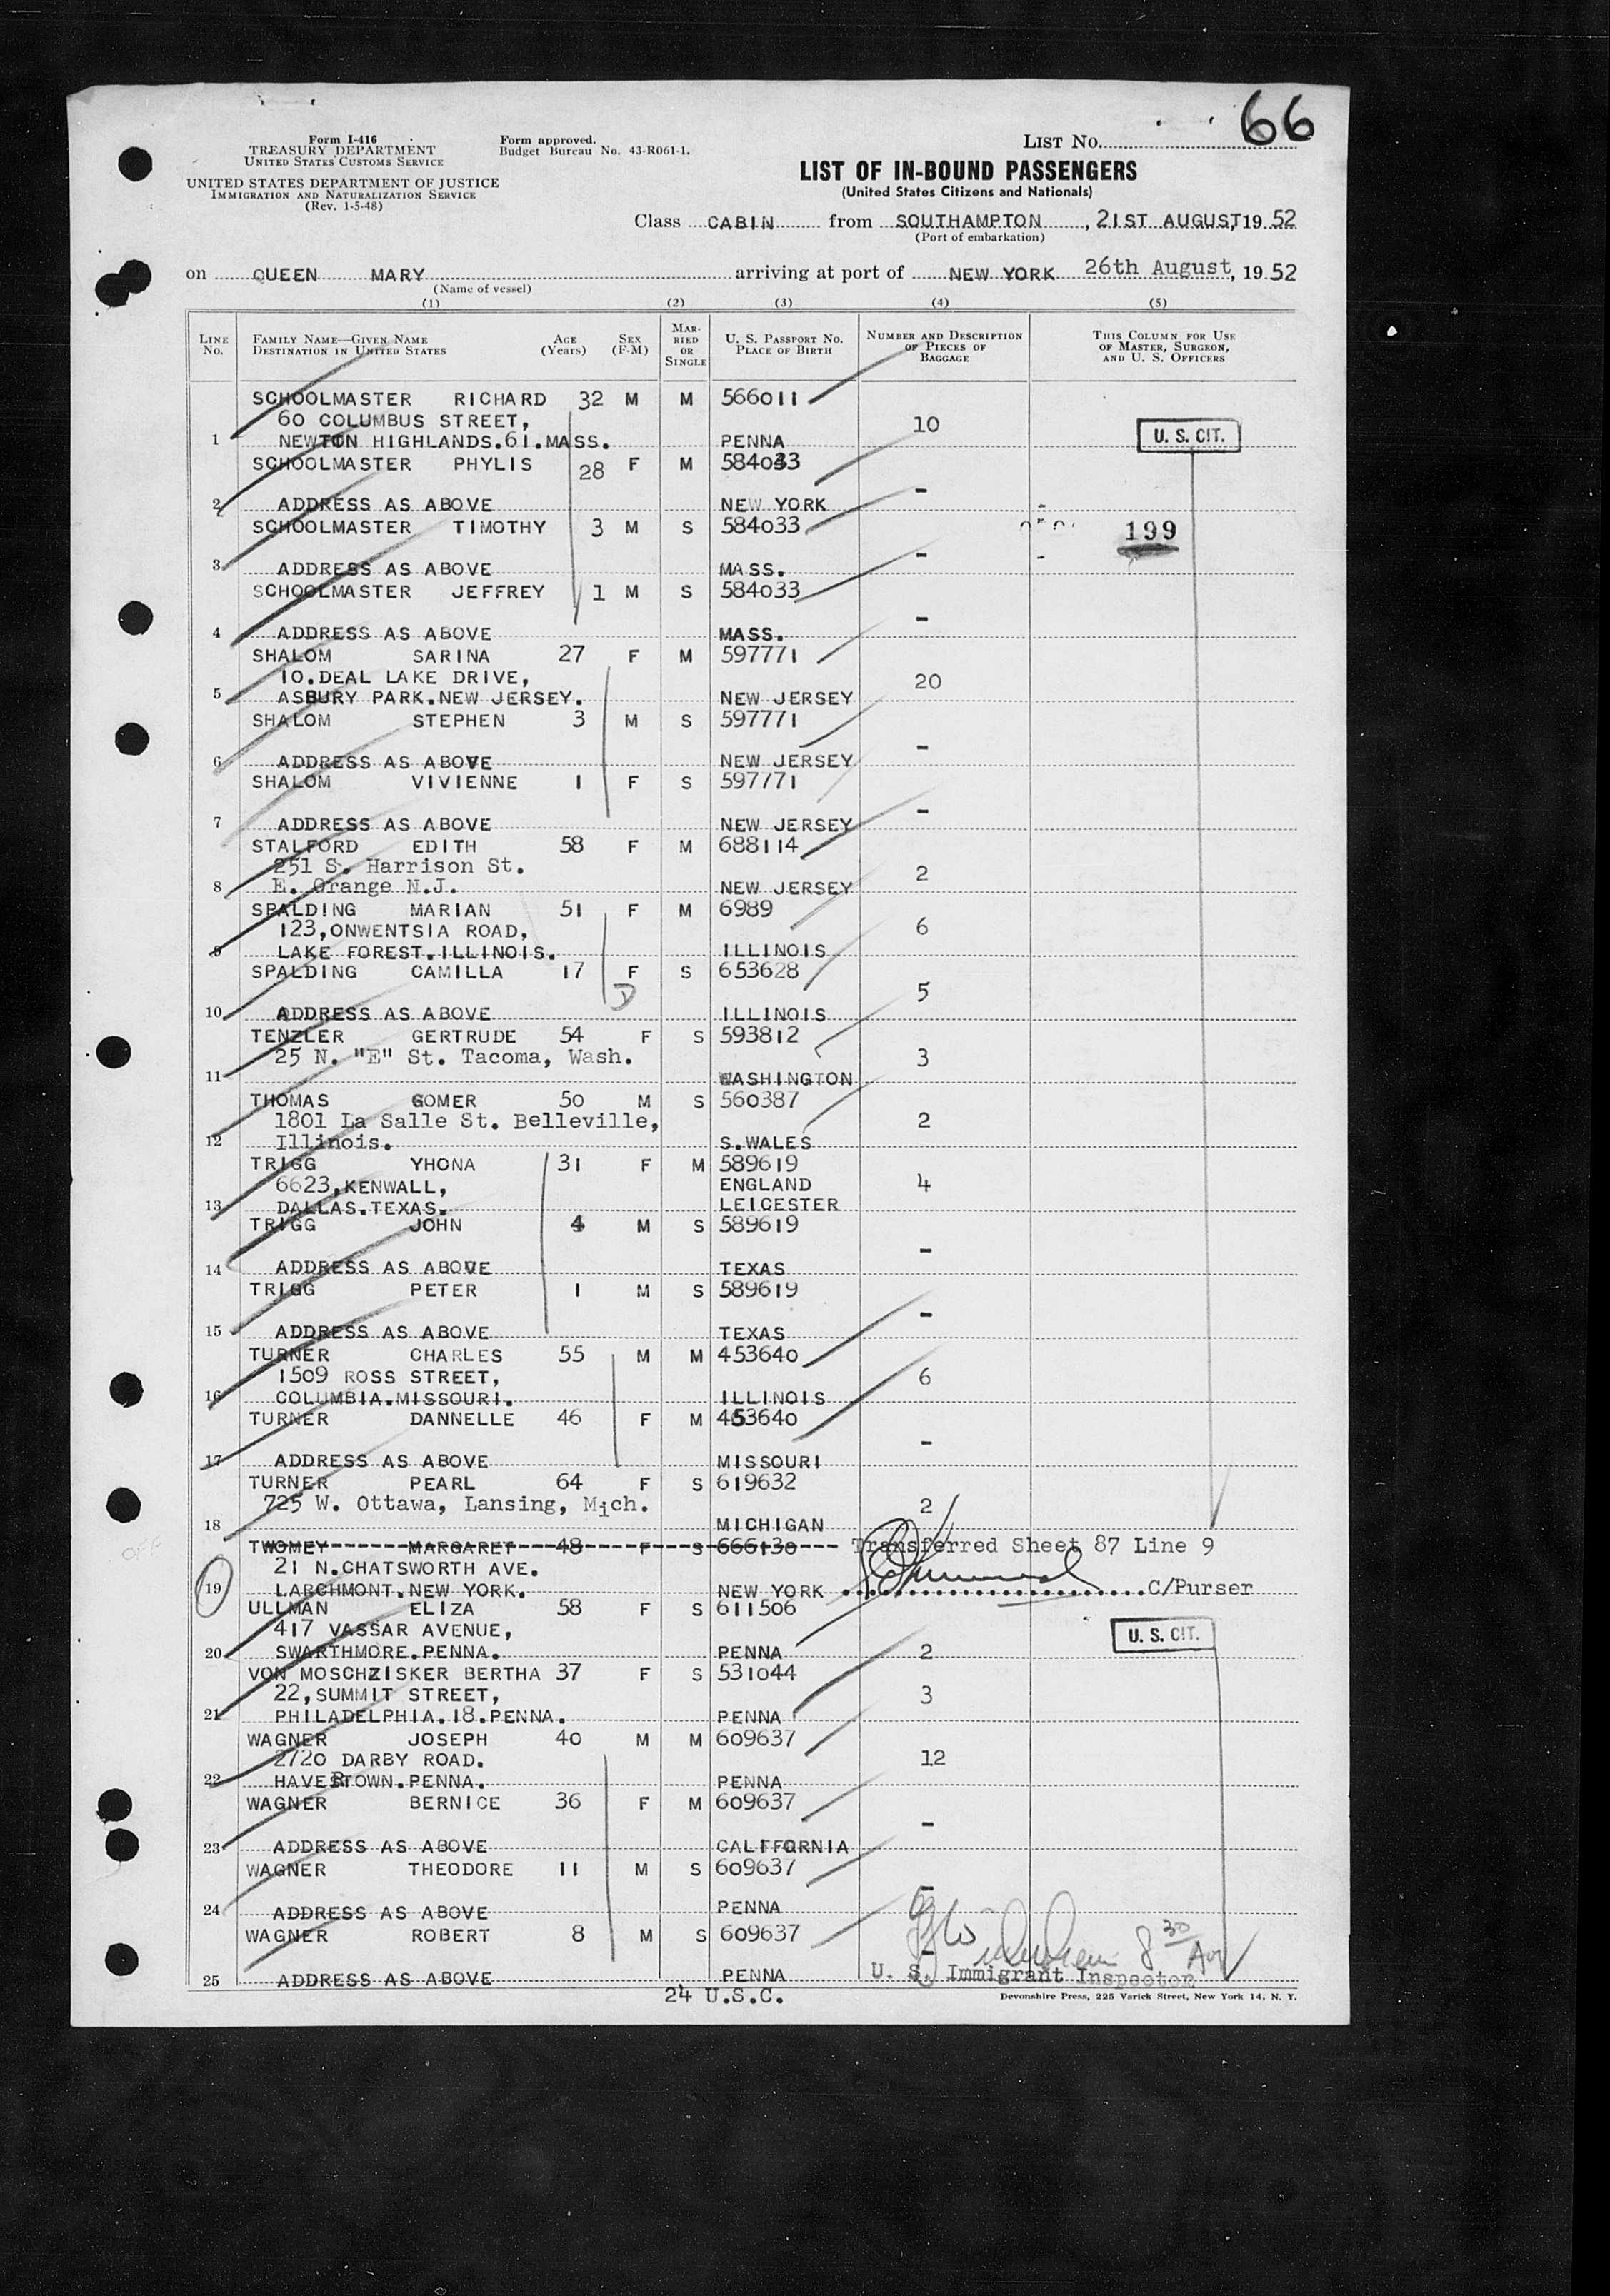 66
Form I-416
TREASURY DEPARTMENT
UNITED STATES CUSTOMS SERVICE
UNITED STATES DEPARTMENT OF JUSTICE
IMMIGRATION AND NATURALIZATION SERVICE
(Rev. 1-5-48)
Form approved.
Budget Bureau No. 43-R061-1.
LIST No.
LIST OF IN-BOUND PASSENGERS
(United States Citizens and Nationals)
Class CABIN from SOUTHAMPTON, 21ST AUGUST, 19 52
(Port of embarkation)
on QUEEN MARY arriving at port of NEW YORK 26th August, 19 52
(Name of vessel)
(1) (2) (3) (4) (5)
LINE No.
FAMILY NAME—GIVEN NAME
DESTINATION IN UNITED STATES
AGE (Years)
SEX (F-M)
MARRIED OR SINGLE
U. S. PASSPORT NO.
PLACE OF BIRTH
NUMBER AND DESCRIPTION OF PIECES OF BAGGAGE
THIS COLUMN FOR USE OF MASTER, SURGEON, AND U. S. OFFICERS
SCHOOLMASTER RICHARD 32 M M 566011
60 COLUMBUS STREET, 10
1 NEWTON HIGHLANDS.61.MASS. PENNA U. S. CIT.
SCHOOLMASTER PHYLIS 28 F M 584033
-
2 ADDRESS AS ABOVE NEW YORK
SCHOOLMASTER TIMOTHY 3 M S 584033 199
-
3 ADDRESS AS ABOVE MASS.
SCHOOLMASTER JEFFREY 1 M S 584033
-
4 ADDRESS AS ABOVE MASS.
SHALOM SARINA 27 F M 597771
10.DEAL LAKE DRIVE, 20
5 ASBURY PARK.NEW JERSEY. NEW JERSEY
SHALOM STEPHEN 3 M S 597771
-
6 ADDRESS AS ABOVE NEW JERSEY
SHALOM VIVIENNE 1 F S 597771
-
7 ADDRESS AS ABOVE NEW JERSEY
STALFORD EDITH 58 F M 688114
251 S. Harrison St. 2
8 E. Orange N.J. NEW JERSEY
SPALDING MARIAN 51 F M 6989
123,ONWENTSIA ROAD, 6
9 LAKE FOREST.ILLINOIS. ILLINOIS
SPALDING CAMILLA 17 F S 653628
D 5
10 ADDRESS AS ABOVE ILLINOIS
TENZLER GERTRUDE 54 F S 593812
25 N. "E" St. Tacoma, Wash. 3
11 WASHINGTON
THOMAS GOMER 50 M S 560387
1801 La Salle St. Belleville, 2
12 Illinois. S.WALES
TRIGG YHONA 31 F M 589619
6623,KENWALL, ENGLAND 4
13 DALLAS.TEXAS. LEICESTER
TRIGG JOHN 4 M S 589619
-
14 ADDRESS AS ABOVE TEXAS
TRIGG PETER 1 M S 589619
-
15 ADDRESS AS ABOVE TEXAS
TURNER CHARLES 55 M M 453640
1509 ROSS STREET, 6
16 COLUMBIA.MISSOURI. ILLINOIS
TURNER DANNELLE 46 F M 453640
-
17 ADDRESS AS ABOVE MISSOURI
TURNER PEARL 64 F S 619632
725 W. Ottawa, Lansing, Mich. 2
18 MICHIGAN
TWOMEY MARGARET 48 F S 666130 Transferred Sheet 87 Line 9
21 N.CHATSWORTH AVE.
19 LARCHMONT.NEW YORK. NEW YORK C/Purser
ULLMAN ELIZA 58 F S 611506
417 VASSAR AVENUE, U. S. CIT.
20 SWARTHMORE.PENNA. PENNA 2
VON MOSCHZISKER BERTHA 37 F S 531044
22,SUMMIT STREET, 3
21 PHILADELPHIA.18.PENNA. PENNA
WAGNER JOSEPH 40 M M 609637
2720 DARBY ROAD. 12
22 HAVERTOWN.PENNA. PENNA
WAGNER BERNICE 36 F M 609637
-
23 ADDRESS AS ABOVE CALIFORNIA
WAGNER THEODORE 11 M S 609637
-
24 ADDRESS AS ABOVE PENNA
WAGNER ROBERT 8 M S 609637 8 30
-
25 ADDRESS AS ABOVE PENNA U. S. Immigrant Inspector
24 U.S.C.
Devonshire Press, 225 Varick Street, New York 14, N. Y.